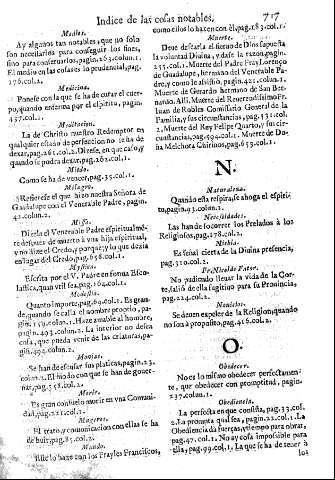 Indice de las cosas notables, 717
Medios.
Ay algunos tan notables, que no solo
son necessarios para conseguir los fines,
sino para conservarlos, pagin. 263. colun. 1.
El medio en las cosas es la prudencial, pag.
176. col. 2.
Medicina.
Ponese con la que se ha de curar el cuer-
po, quando enferma por el espiritu, pagin.
437. colun. 1.
Meditacion.
La de Christo nuestro Redemptor en
qualquier estado de perfeccion no se ha de
dexar, pag. 261. col. 2. Dizese, en que caso, y
quando se podra dexar, pag. 262. col. 1.
Miedo.
Como se ha de vencer, pag. 35. col. 1.
Milagro.
Refierese el que hizo nuestra Señora de
Guadalupe con el Venerable Padre, pagin.
42. colun. 2.
Missa.
Dizela el Venerable Padre espiritualmẽ-
te despues de muerto à una hija espiritual,
y no dize el Credo, y porquè; y lo que dezia
en lugar del Credo, pag. 658. col. 1.
Mystica.
Escrita por el V. Padre en forma Esco-
lastica, quan util sea, pag. 164. col. 1.
Modestia.
Quanto importe, pag. 69. col. 1. Es gran-
de, quando se calla el nombre proprio, pa-
gin. 159. colun. 1. Haze amable al hombre,
pagin. 493. colun. 2. La interior no desea
cosa, que pueda venir de las criaturas, pa-
gin. 494. colun. 2.
Monjas.
Se han de escusar sus platicas, pagin. 23.
colun. 2. El modo con que se han de gover-
nar, pag. 358. col. 2.
Morir.
Es gran consuelo morir en una Comuni-
dad, pag. 221. col. 1.
Mugeres.
El trato, y comunicacion con ellas se ha
de huir, pag. 85. col. 2.
Mundo.
Este lo hazen con los Frayles Franciscos,
como ellos lo hazen con èl, pag. 183. col. 1.
Muerte.
Deve desearla el siervo de Dios supuesta
la voluntad Divina, y dase la razon, pagin.
255. col. 1. Muerte del Padre Fray Lorenço
de Guadalupe, hermano del Venerable Pa-
dre, y como le assistiò, pagin. 421. col. 1.
Muerte de Gerardo hermano de San Ber-
nardo. Alli. Muerte del Reverendissimo Fr.
Iuan de Robles Comissario General de la
Familia, y sus circunstancias, pag. 531. col.
2. Muerte del Rey Felipe Quarto, y sus cir-
cunstancias, pag. 594. col. 1. Muerte de Do-
ña Melchora Chirinos, pag. 653. col. 1.
N.
Naturaleza.
Quando esta respira, se ahoga el espiri-
tu, pagin. 43. colun. 2.
Necesidades.
Las han de socorrer los Prelados à los
Religiosos, pag. 178. col. 2.
Niebla.
Es señal cierta de la Divina presencia,
pag. 320. col. 2.
Fr. Nicolàs Fator.
No pudiendo llevar la vida de la Cor-
te, saliò de ella fugitivo para su Provincia,
pag. 224. col. 2.
Novicios.
Se deven expeler de la Religion, quando
no son à proposito, pag. 416. col. 2.
O.
Obedecer.
No es lo mismo obedecer perfectamen-
te, que obedecer con promptitud, pagin.
237. colun. 1.
Obediencia.
La perfecta en que consista, pag. 33. col.
2. La prompta qual sea, pagin. 22. col. 1. La
Obediencia da fuerças, y tiempo para obrar,
pag. 47. col. 1. No ay cosa impossible para
ella, pag. 99. col. 1. La que se ha de tener à
los